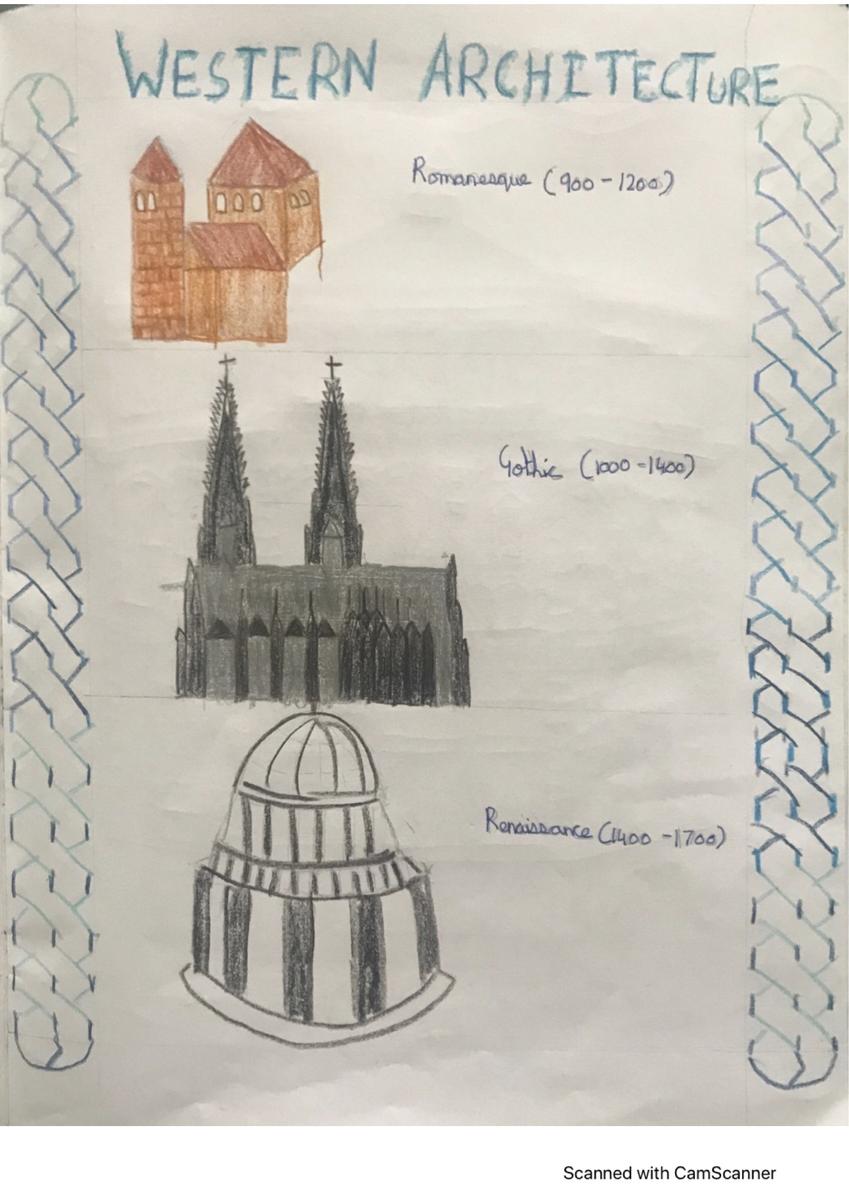 WESTERN ARCHITECTURE
Romanesque (900-1200)
Gothic (1000-1400)
Renaissance (1400-1700)
Scanned with CamScanner